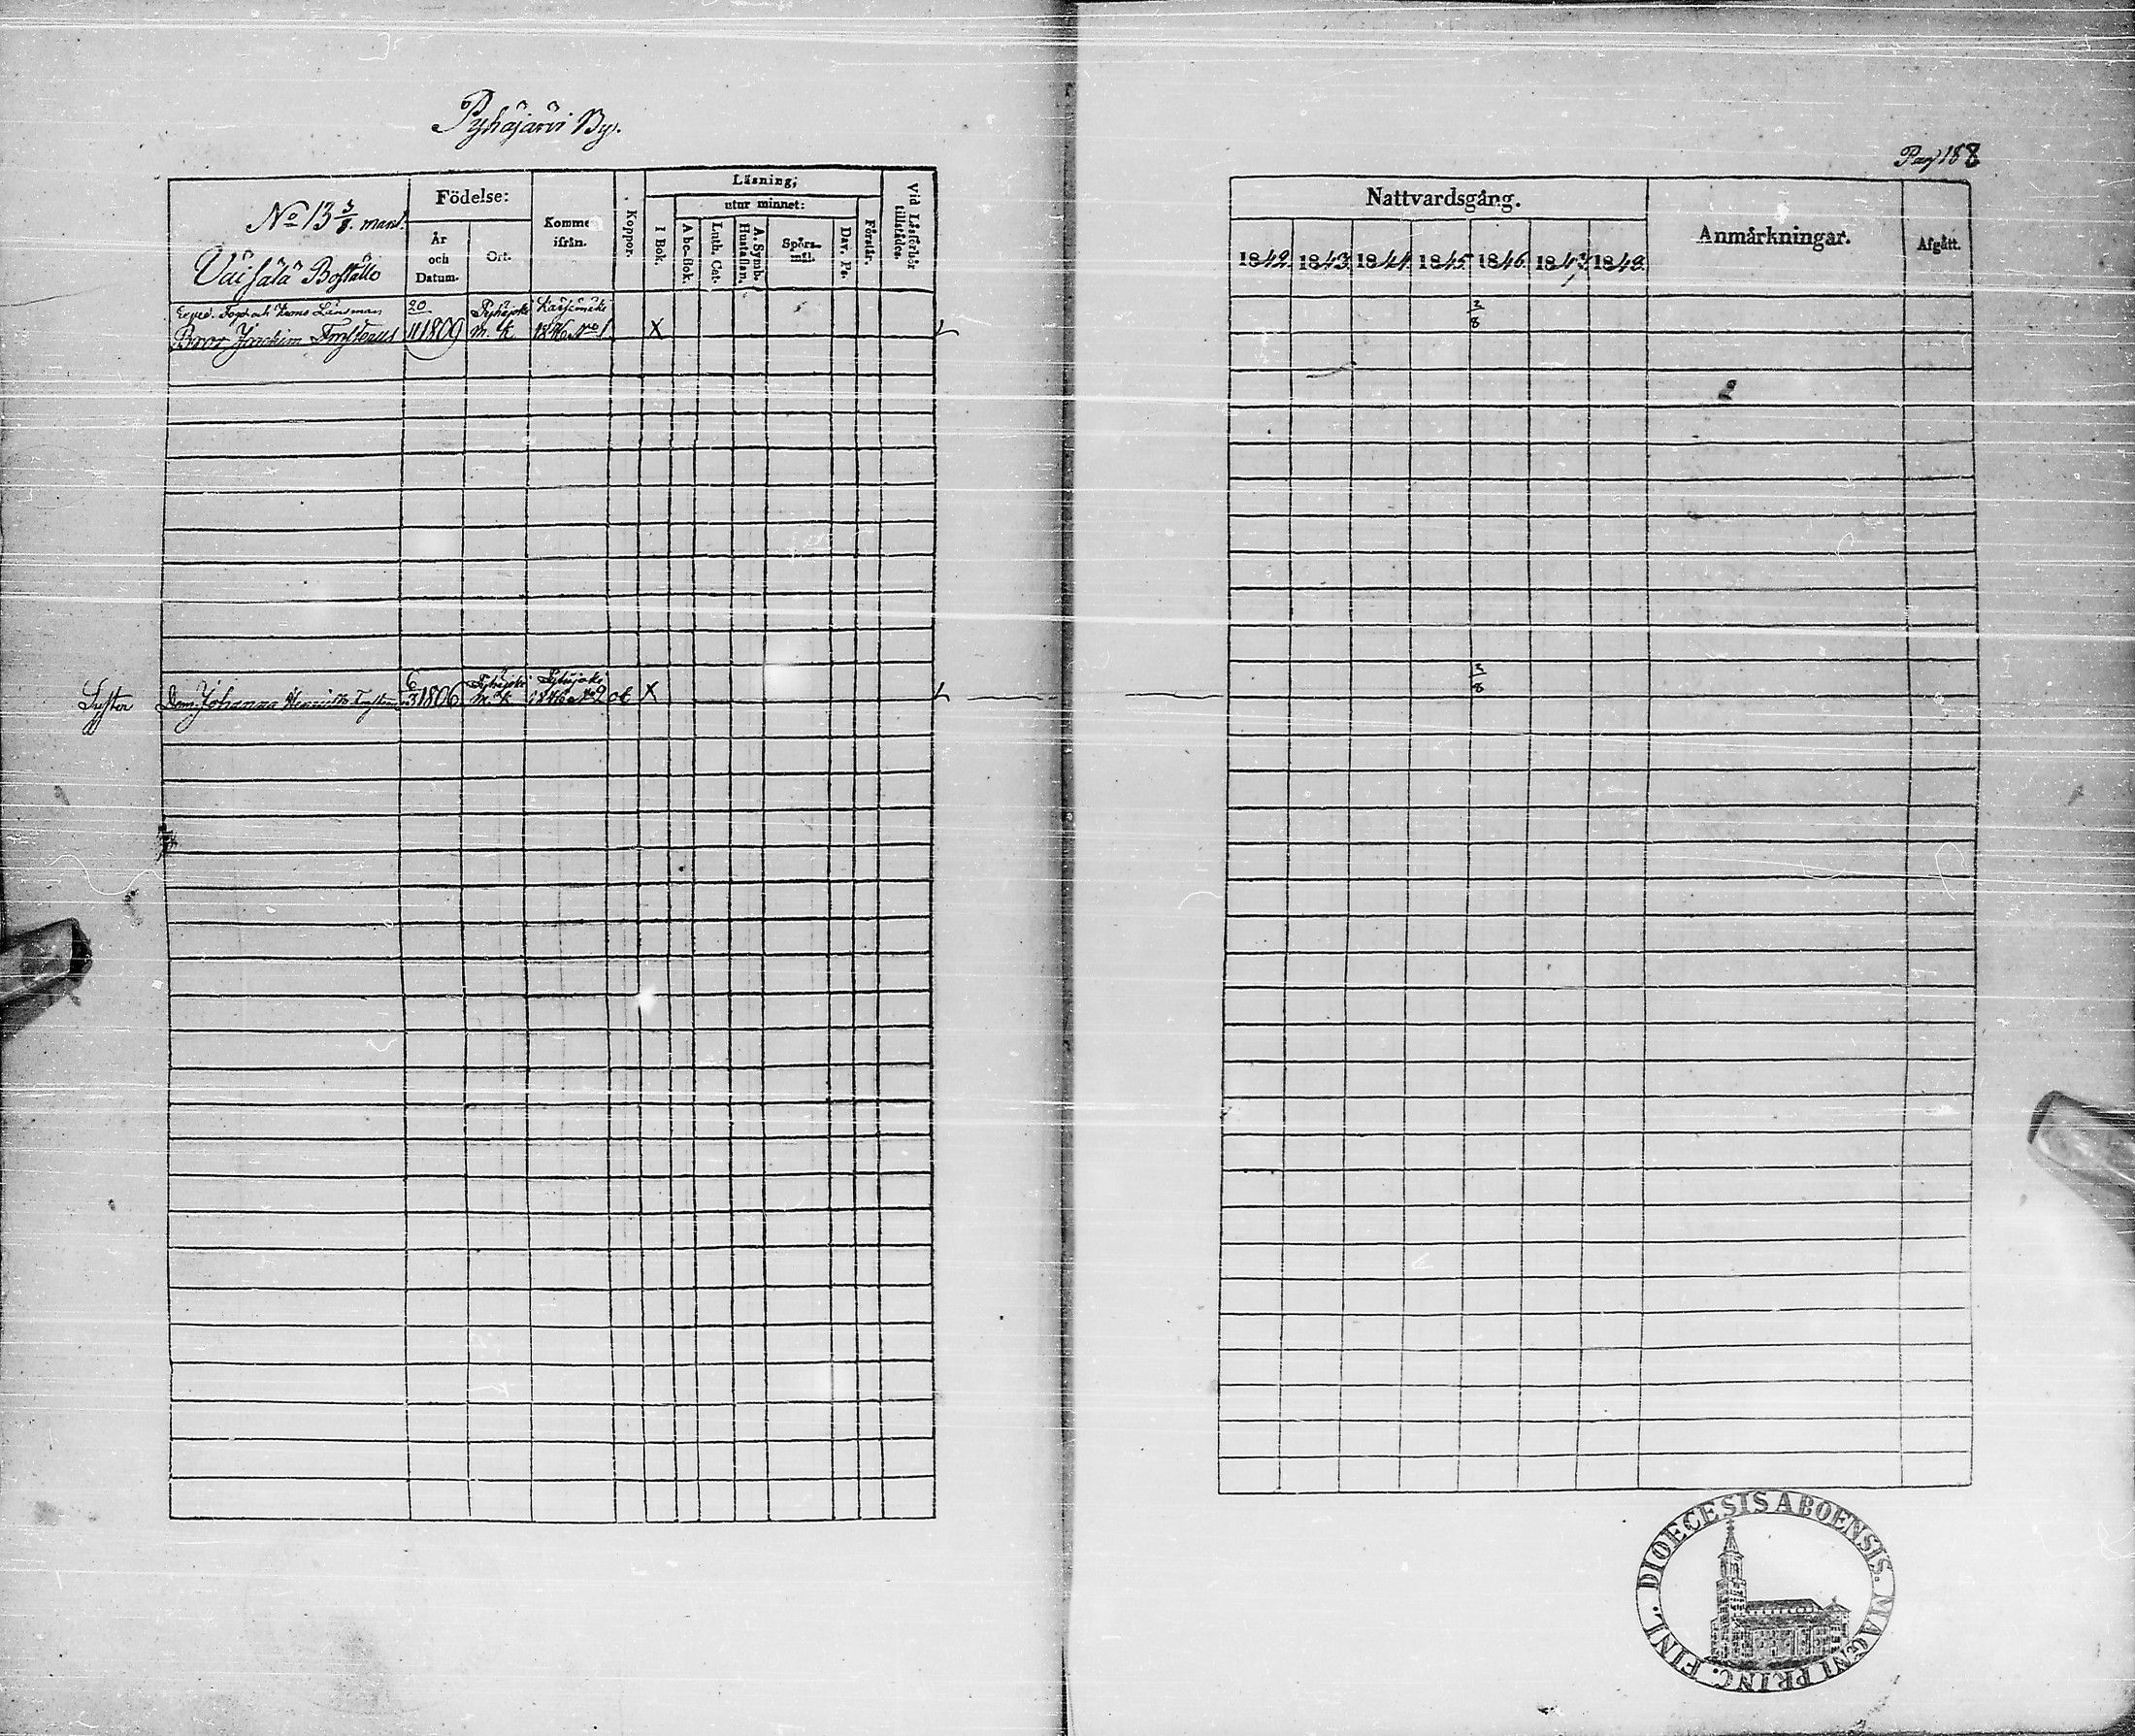 Pyhäjärvi By.
Pag 188
No 13 3/8 mantl.
Väisälä Boställe
Födelse:
År och Datum.
Ort.
Kommen ifrån.
Koppor.
Läsning;
I Bok.
utur minnet:
Abc-Bok.
Luth. Cat.
A. Symb. Hustaflan.
Spörsmål.
Dav. Ps.
Förstår.
Vid Läsförhör tillstädes.
Nattvardsgång.
Anmärkningar.
Afgått.
1842. 1843. 1844. 1845. 1846. 1847. 1848.
och Krono Länsman 20 Pyhäjoki 3
Bror Joachim 11 1809 m. k. 1846 No 1. X 8
6 Pyhäjoki Pyhäjoki 3
Syster Dem. Johanna 3 1806 m. k. 1846 No 2 X 8
DIOECESIS ABOENSIS. MAGNI PRINC. FINL.